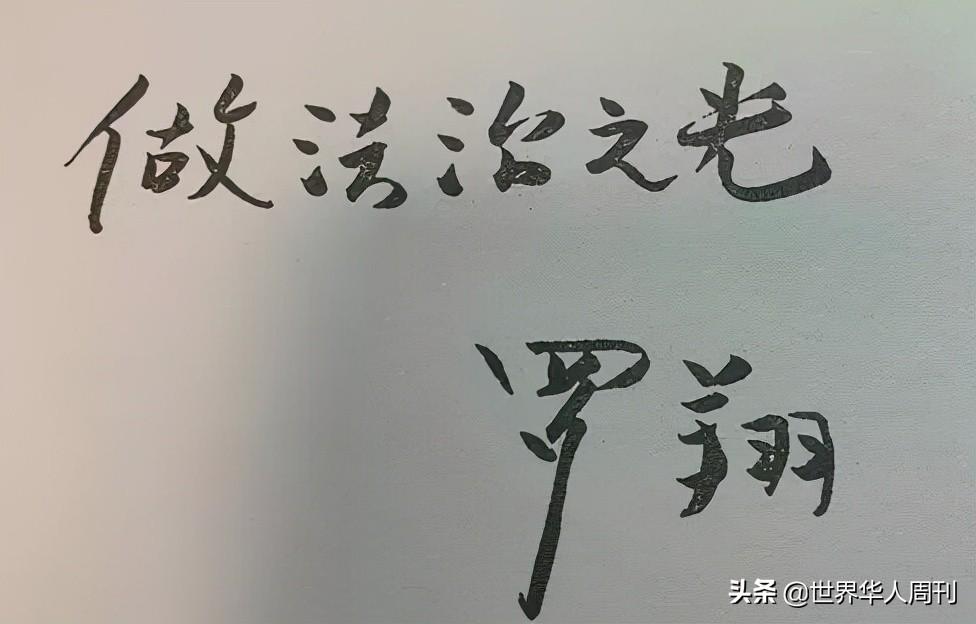 做法治之光
罗翔
头条 @世界华人周刊